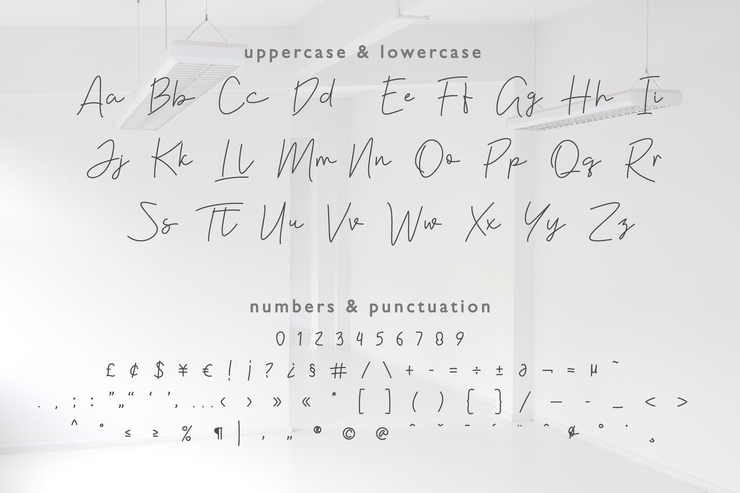 uppercase & lowercase
Aa Bb Cc Dd Ee Ff Gg Hh Ii
Jj Kk Ll Mm Nn Oo Pp Qq Rr
Ss Tt Uu Vv Ww Xx Yy Zz
numbers & punctuation
0 1 2 3 4 5 6 7 8 9
£ ¢ $ ¥ € ! ¡ ? ¿ § # / \ + - = ÷ ± ∂ ¬ ≈ µ ~
. , ; : " „ “ ‘ ’ , ... ‹ › » « * [ ] ( ) { } / — - _ < >
^ ° ≤ ≥ % ¶ | ‚ „ ® © @ ˆ ˇ ˘ ´ ¨ ˉ ˆ ¢ ° ˙ ¸